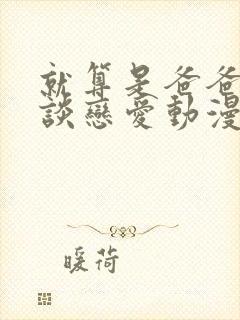 就算是爸爸
談戀愛動漫
暖荷